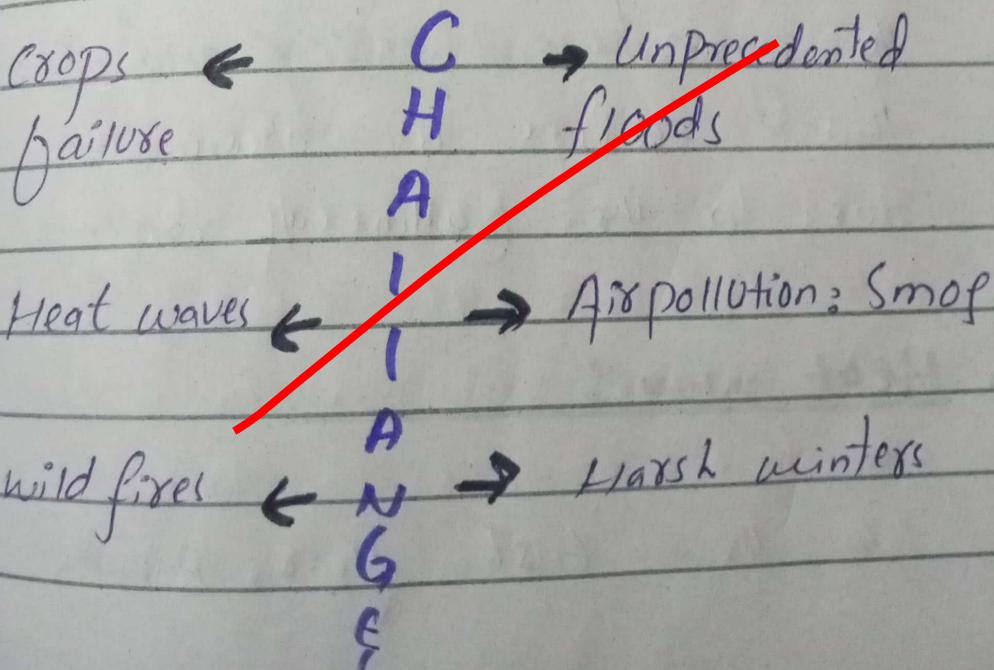 Crops ← C → Unprecedented
failure H floods
A
I
Heat waves ← → Air pollution: Smog
I
A
Wild fires ← N → Harsh winters
G
E